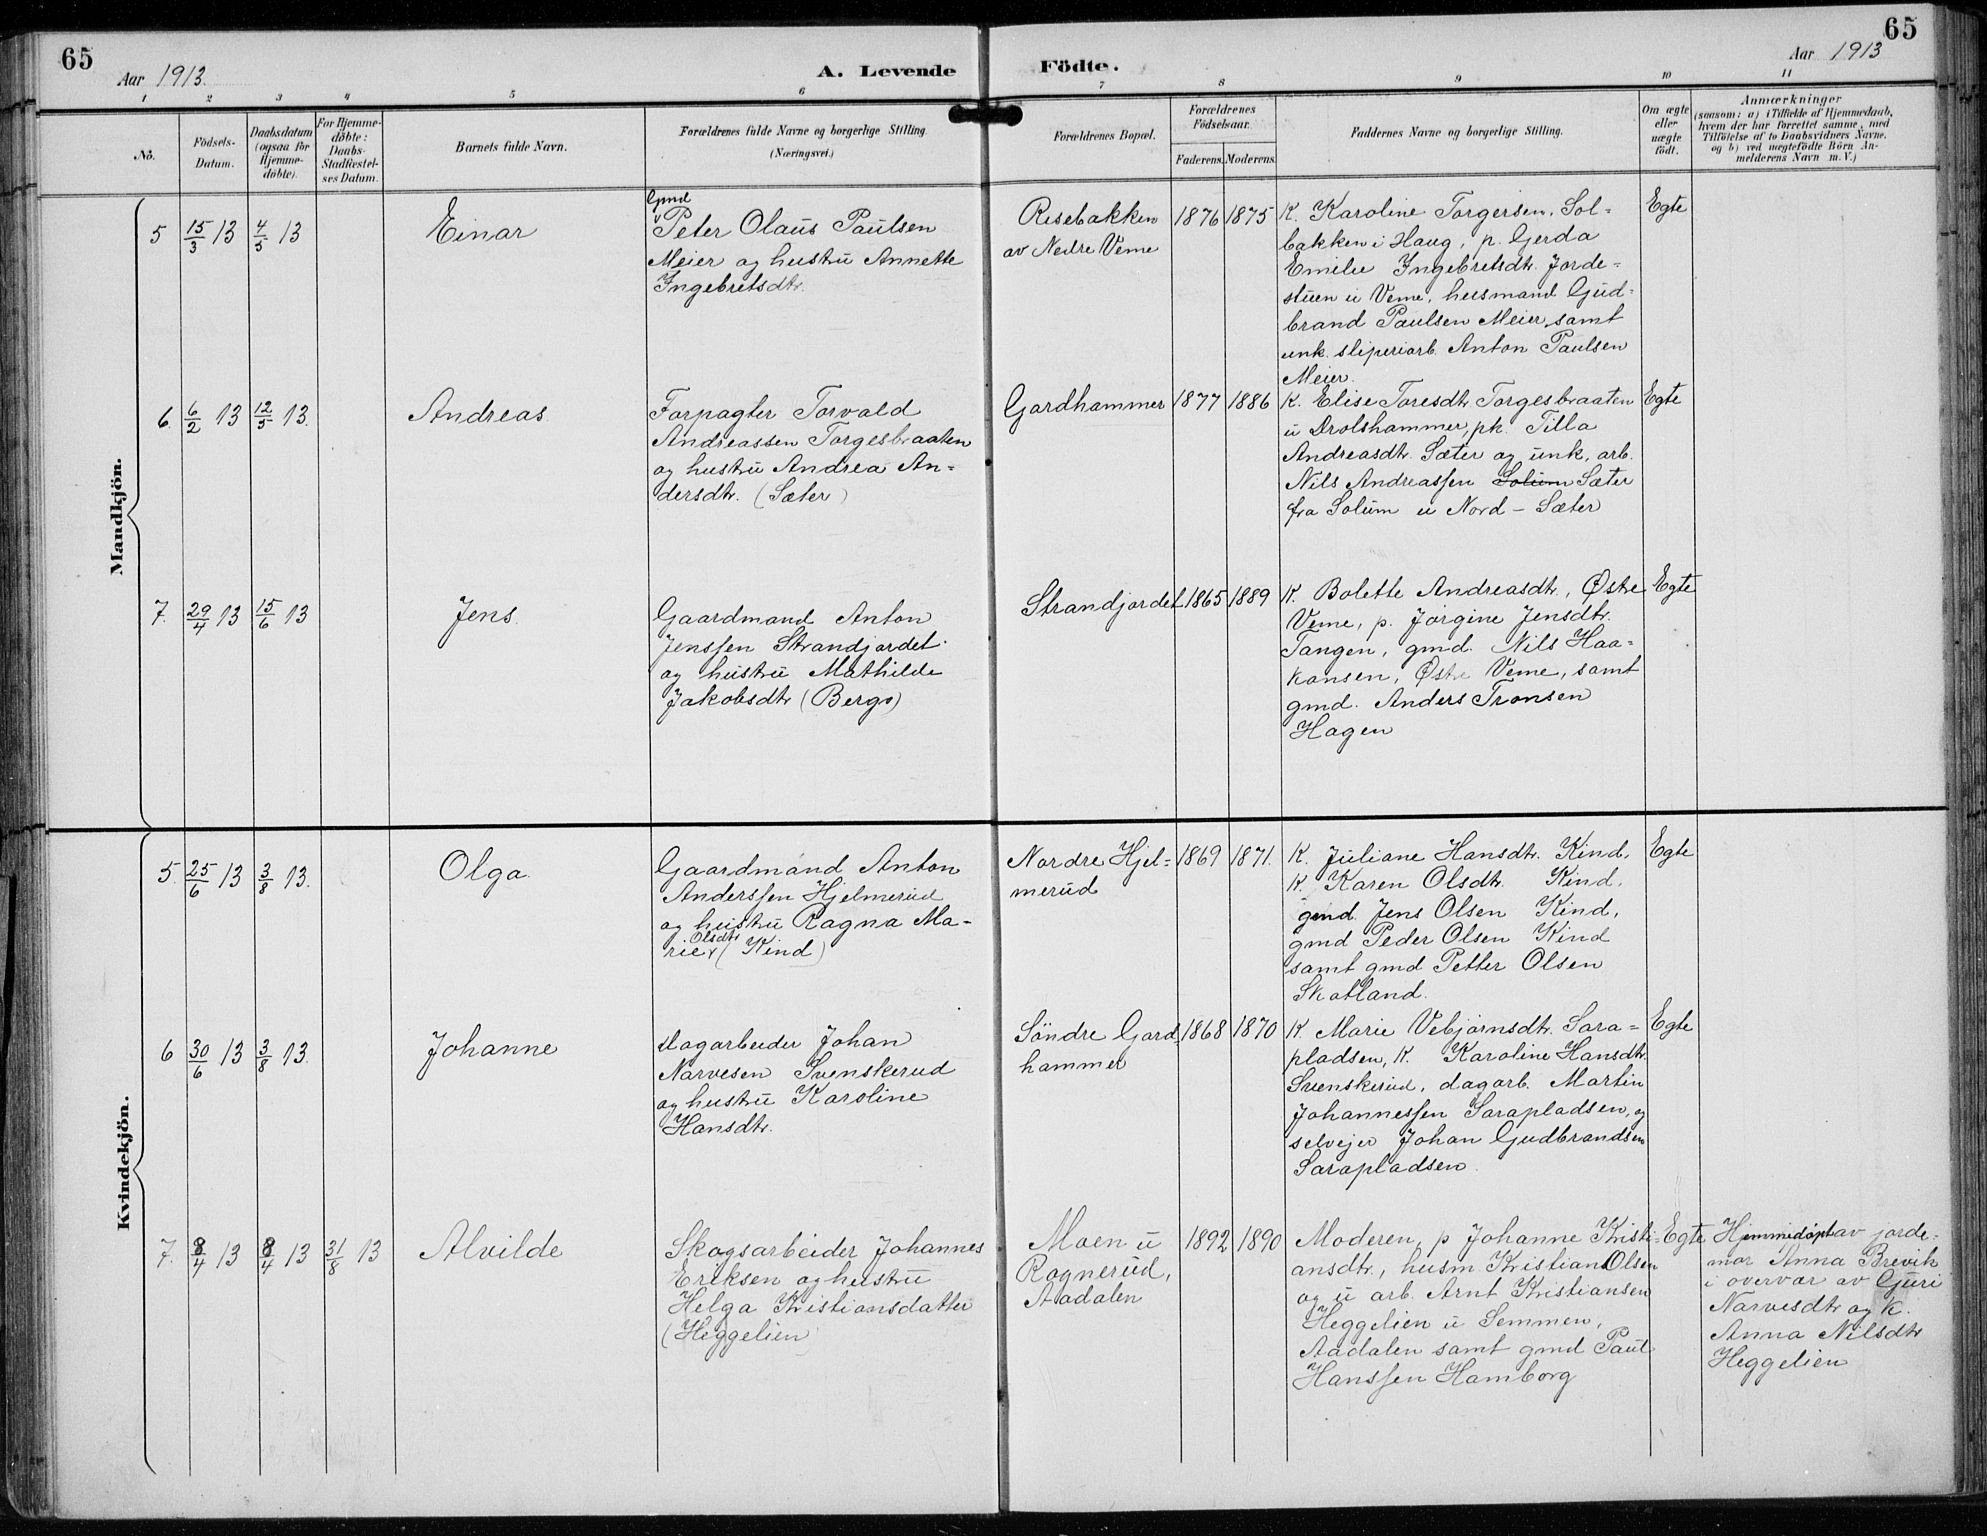 65
65
Aar 1913.
A. Levende Födte.
Aar 1913
1 2 3 4 5 6 7 8 9 10 11
No.
Födsels-
Datum.
Daabsdatum
(ogsaa for
Hjemme-
döbte).
For Hjemme-
döbte:
Daabs-
Stadfæstel-
ses Datum.
Barnets fulde Navn.
Forældrenes fulde Navne og borgerlige Stilling.
(Næringsvei.)
Forældrenes Bopæl.
Forældrenes
Födselsaar.
Faderens. Moderens.
Faddernes Navne og borgerlige Stilling.
Om ægte
eller
uægte
födt.
Anmærkninger
(saasom: a) i Tilfælde af Hjemmedaab,
hvem der har forrettet samme, med
Tilföielse af to Daabsvidners Navne.
og b) ved uægtefödte Börn An-
melderens Navn m. V.)
Mandkjön.
5 15/3 13 4/5 13
Einar
Gmd
Peter Olaus Paulsen
Meier og hustru Annette
Ingebretsdtr.
Risebakken
av Nedre Veme
1876 1875
K. Karoline Torgersen, Sol-
bakken i Haug, p. Gerda
Emilie Ingebretsdtr. Jorde-
stuen u Veme, husmand Gud-
brand Paulsen Meier samt
unk. sliperiarb. Anton Paulsen
Meier.
Egte
6. 6/2 13 12/5 13.
Andreas.
Forpagter Torvald
Andreassen Torgesbraaten
og hustru Andrea An-
dersdtr. (Sæter)
Gardhammer
1877 1886
K. Elise Toresdtr. Torgesbraaten
u Drolshammer, pk. Tilla
Andreasdtr. Sæter og unk. arb.
Nils Andreassen Solum Sæter
fra Solum u Nord-Sæter
Egte
7. 29/4 13 15/6 13
Jens.
Gaardmand Anton
Jenssen Strandjordet
og hustru Mathilde
Jakobsdtr (Berg)
Strandjordet
1865 1889
K. Bolette Andreasdtr, Østre
Veme, p. Jørgine Jensdtr.
Tangen, gmd. Nils Haa-
kansen, Østre Veme, samt
gmd. Anders Tronsen
Hagen
Egte
Kvindekjön.
5. 25/6 13 3/8 13.
Olga.
Gaardmand Anton
Anderssen Hjelmerud
og hustru Ragna Ma-
Olsdtr
rie (Kind)
Nordre Hjel-
merud
1869 1871.
K. Juliane Hansdtr. Kind.
K. Karen Olsdtr. Kind.
gmd. Jens Olsen Kind,
gmd Peder Olsen Kind
samt gmd Petter Olsen
Skotland.
Egte
6 30/6 13 3/8 13.
Johanne
dagarbeider Johan
Narvesen Svenskerud
og hustru Karoline
Hansdtr.
Söndre Gard
hammer
1868 1870
K. Marie Vebjørnsdtr. Sara-
pladsen, K. Karoline Hansdtr.
Svenskerud, dagarb. Martin
Johannessen Sarapladsen, og
selvejer Johan Gudbrandsen
Sarapladsen.
Egte
7. 8/4 13 8/4 13 31/8 13
Alvilde
Skogsarbeider Johannes
Eriksen og hustru
Helga Kristiansdatter
(Heggelien)
Moen u
Rognerud,
Aadalen
1892 1890
Moderen, p Johanne Kristi-
ansdtr., husm Kristian Olsen
og u arb. Arnt Kristiansen
Heggelien u Semmen,
Aadalen samt gmd Paul
Hanssen Hamborg
Egte
Hjemmedöpt av jorde-
mor Anna Brevik
i overvær av Guri
Narvesdtr og K.
Anna Nilsdtr
Heggelien